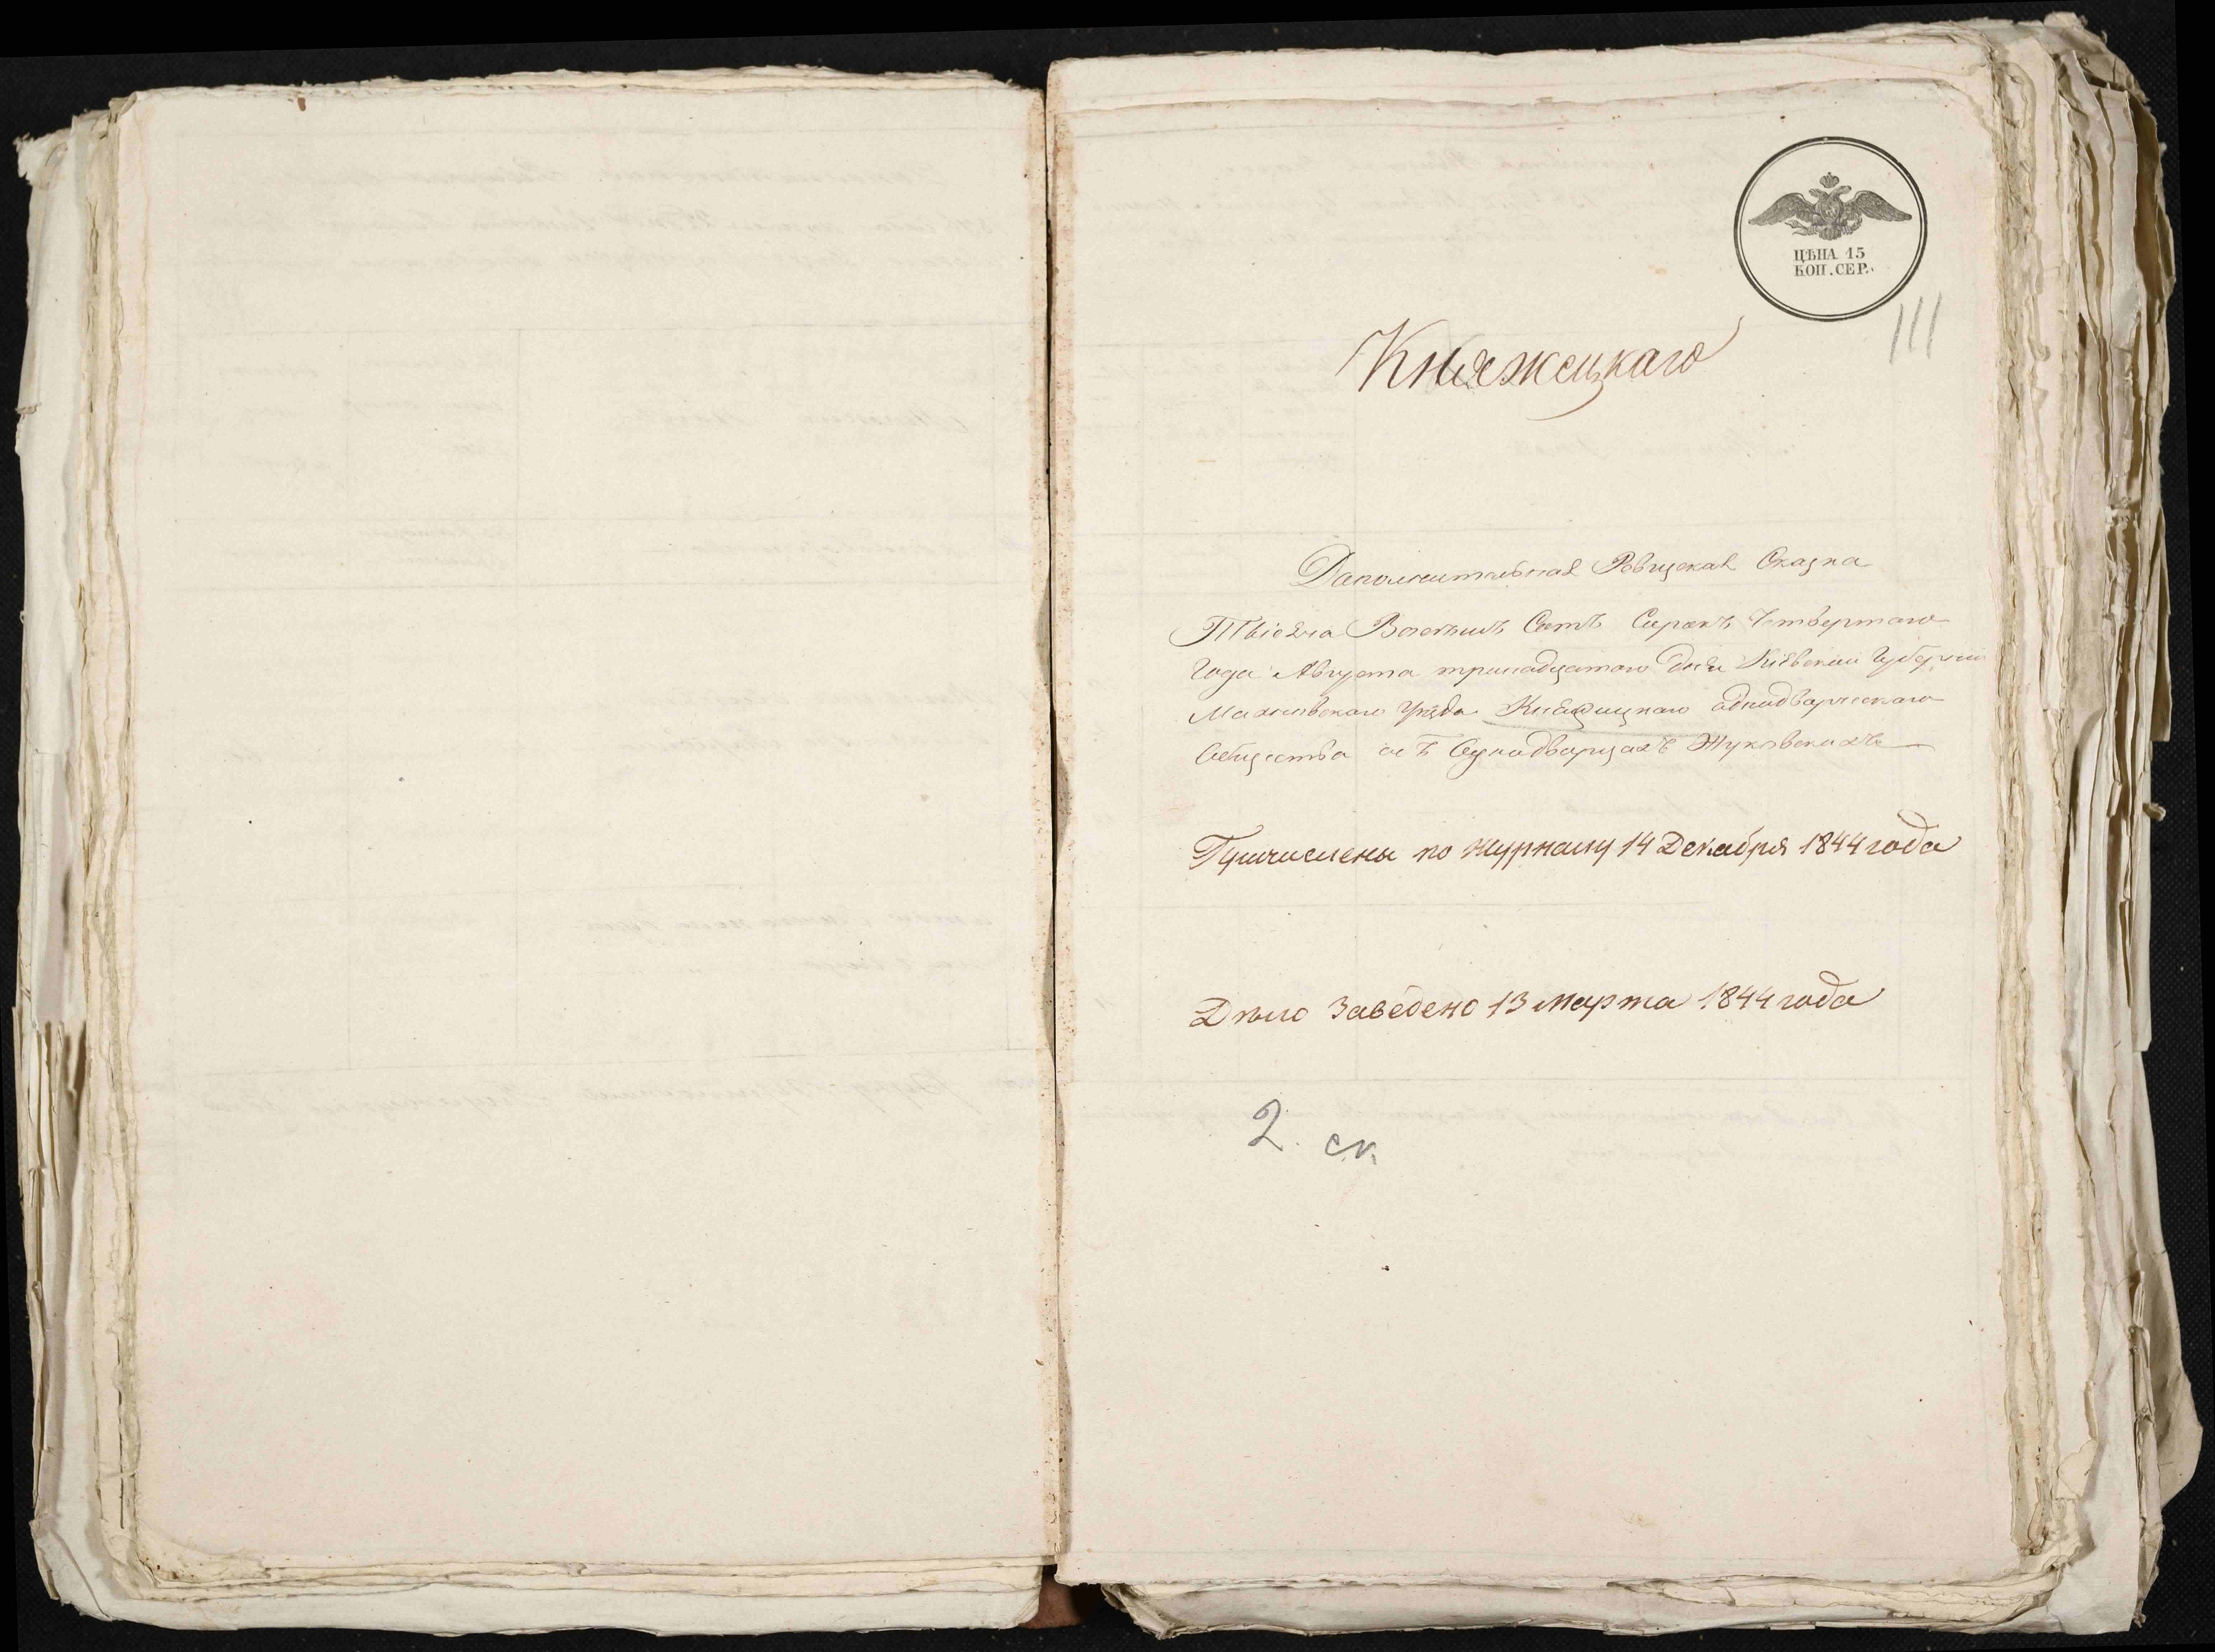 ЦѢНА 15
КОП. СЕР.
111
Княжецкаго
Даполнительная Ревизская Сказка
Тысяча Восемьсъ Сотъ Сорокъ Четвертаго
Года Августа тринадцатаго дня Кіевской Губерніи
Махновскаго Уѣзда Княжицкаго однодворческаго
Общества объ Однодворцахъ Жуковскихъ
Причислены по журналу 14 Декабря 1844 года
Дѣло Заведено 13 Марта 1844 года
2. ск.